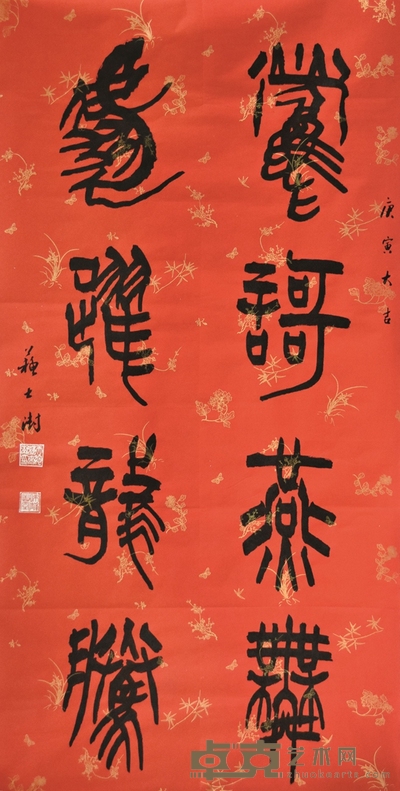 庚寅大吉
鶯謌燕舞
虎躍龍騰
蘇士澍
卓克艺术网